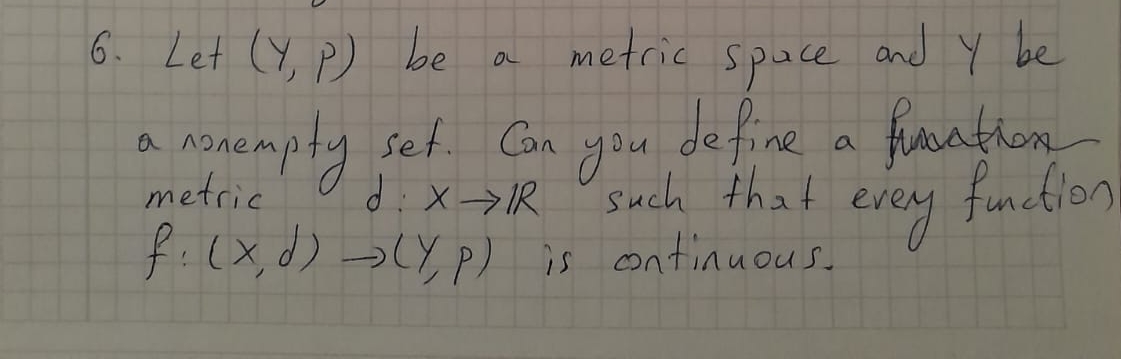 6. Let (Y, p) be a metric space and Y be
a nonempty set. Can you define a function
metric d: X → IR such that every function
f: (X, d) → (Y, p) is continuous.